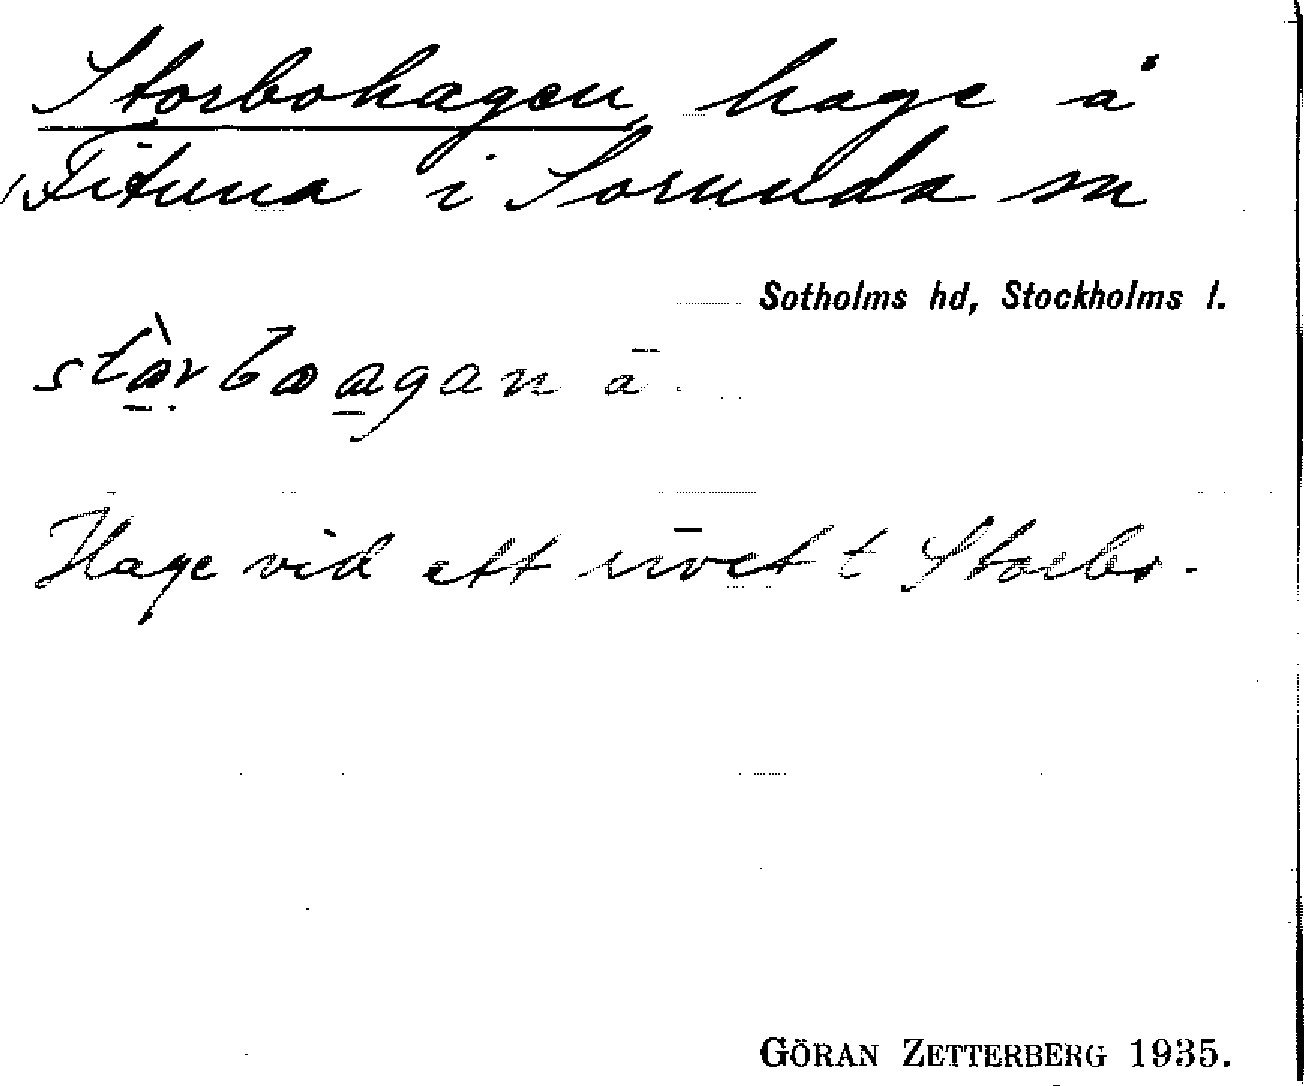 Storbohagen, hage å
Fituna i Sorunda sn
Sotholms hd, Stockholms l.
Hage vid ett rivet t Storbo.
GÖRAN ZETTERBERG 1935.